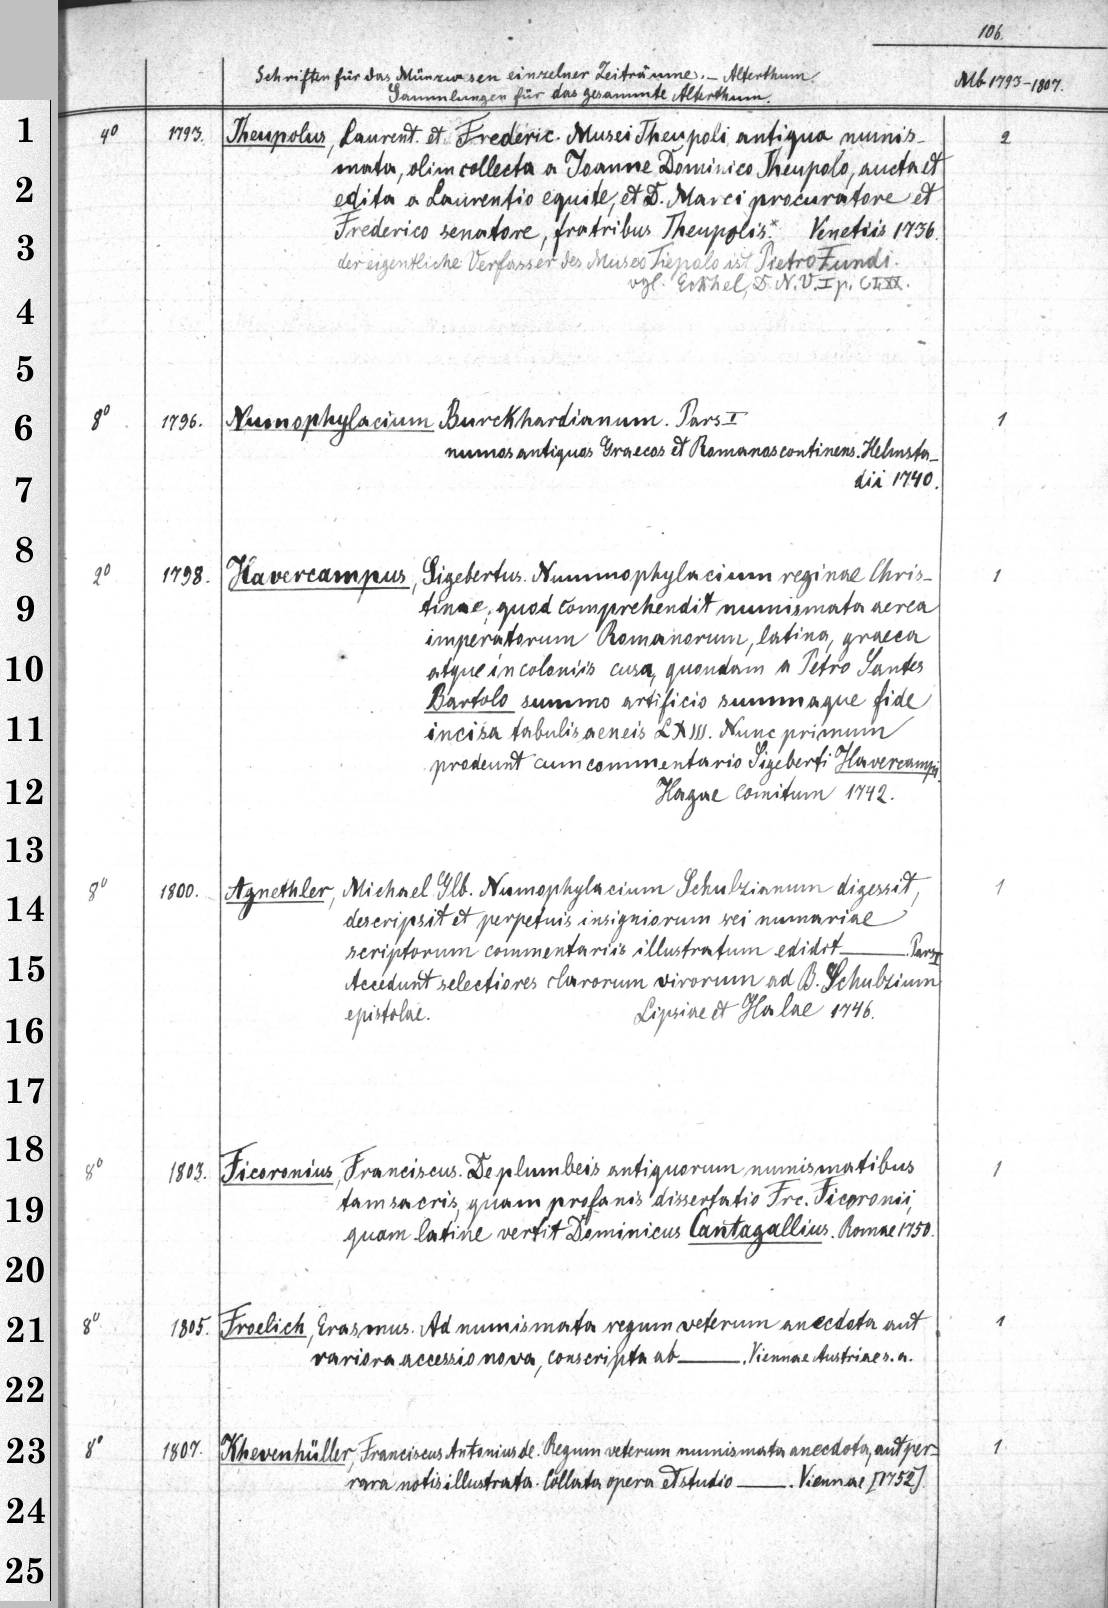 106.
Schriften für das Münzwesen einzelner Zeiträume. – Alterthum
Sammlungen für das gesammte Alterthum.
Mb 1793–1807.
1
4° 1793. Theupolus, Laurent. et Frederic. Musei Theupoli antiqua numis-
2
mata, olim collecta a Joanne Dominico Theupolo, aucta et
2
edita a Laurentio equite, et D. Marci procuratore et
3
Frederico senatore, fratribus Theupolis.* Venetiis 1736.
der eigentliche Verfasser des Museo Tiepolo ist Pietro Fundi.
vgl. Eckhel, D. N. V. I p. CLXX.
4
5
6
8° 1796. Numophylacium Burckhardianum. Pars I 1
numos antiquos Graecos et Romanos continens. Helmsta-
7
dii 1740.
8
2° 1798. Havercampus, Sigebertus. Nummophylacium reginae Chris- 1
9
tinae, quod comprehendit numismata aerea
imperatorum Romanorum, latina, graeca
10
atque in coloniis cusa, quondam a Petro Santes
Bartolo summo artificio summaque fide
11
incisa tabulis aeneis LXIII. Nunc primum
prodeunt cum commentario Sigeberti Havercampi.
12
Hagae Comitum 1742.
13
8° 1800. Agnethler, Michael Glb. Numophylacium Schulzianum digessit, 1
14
descripsit et perpetuis insigniorum rei numariae
scriptorum commentariis illustratum edidit ——. Pars I
15
Accedunt selectiores clarorum virorum ad B. Schulzium
16
epistolae. Lipsiae et Halae 1746.
17
18
8° 1803. Ficoronius, Franciscus. De plumbeis antiquorum numismatibus 1
19
tam sacris, quam profanis dissertatio Frc. Ficoronii,
quam latine vertit Dominicus Cantagallius. Romae 1750.
20
21
8° 1805. Froelich, Erasmus. Ad numismata regum veterum anecdota aut 1
rariora accessio nova, conscripta ab ——. Viennae Austriae s. a.
22
23
8° 1807. Khevenhüller, Franciscus Antonius de. Regum veterum numismata anecdota, aut per- 1
rara notis illustrata. Collata opera et studio ——. Viennae [1752].
24
25